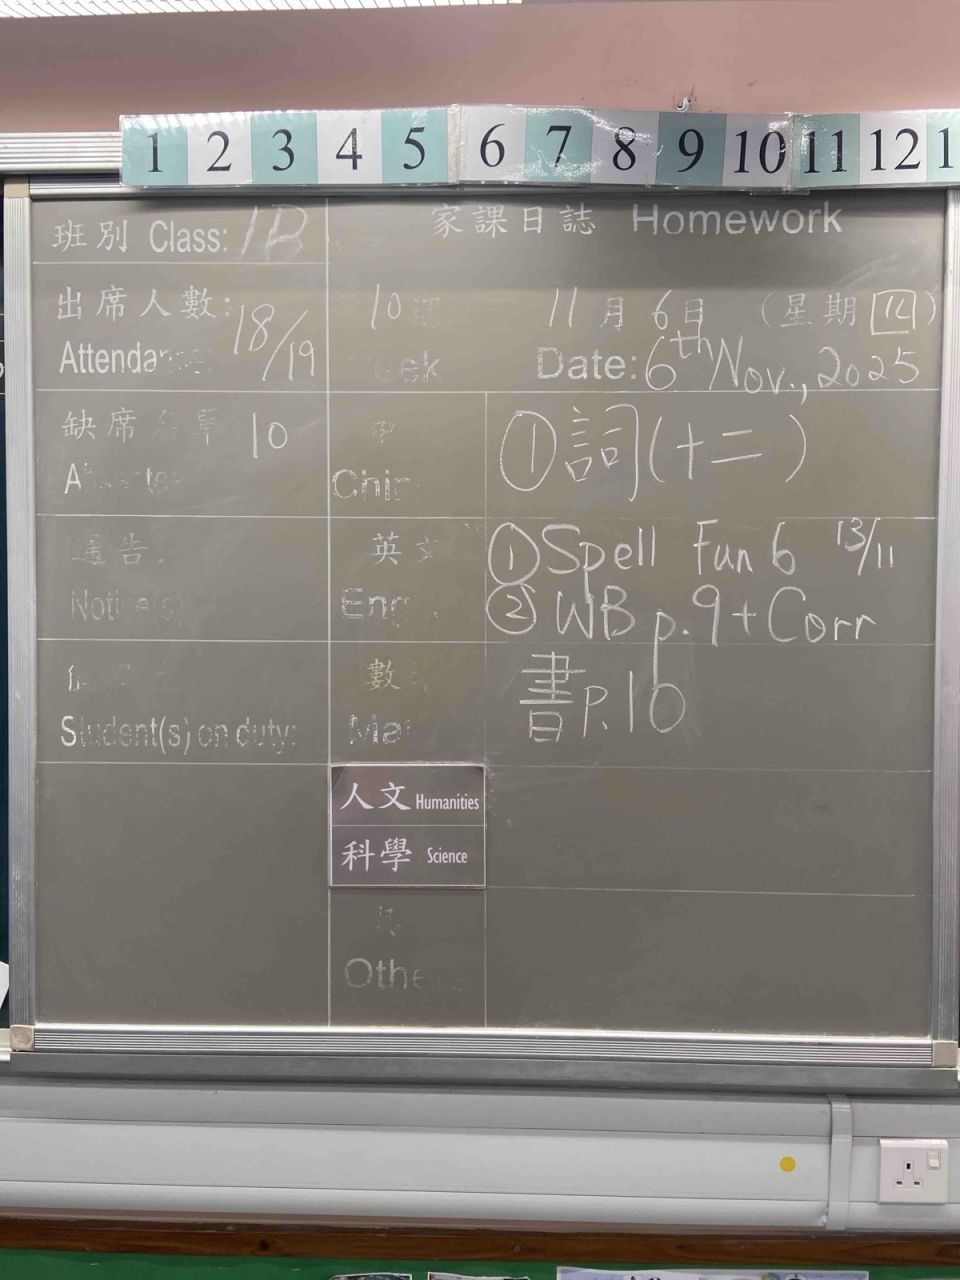 1 2 3 4 5 6 7 8 9 10 11 12 1
班別 Class: 1B
家課日誌 Homework
出席人數: 18/19
10
11月6日 (星期四)
Date: 6th Nov., 2025
缺席 10
① 詞(十二)
Chin
通告:
英文
① Spell Fun 6 13/11
Notice(s)
Eng
② WB p.9 + Corr
數
書P.10
Student(s) on duty:
Ma
人文 Humanities
科學 Science
Othe